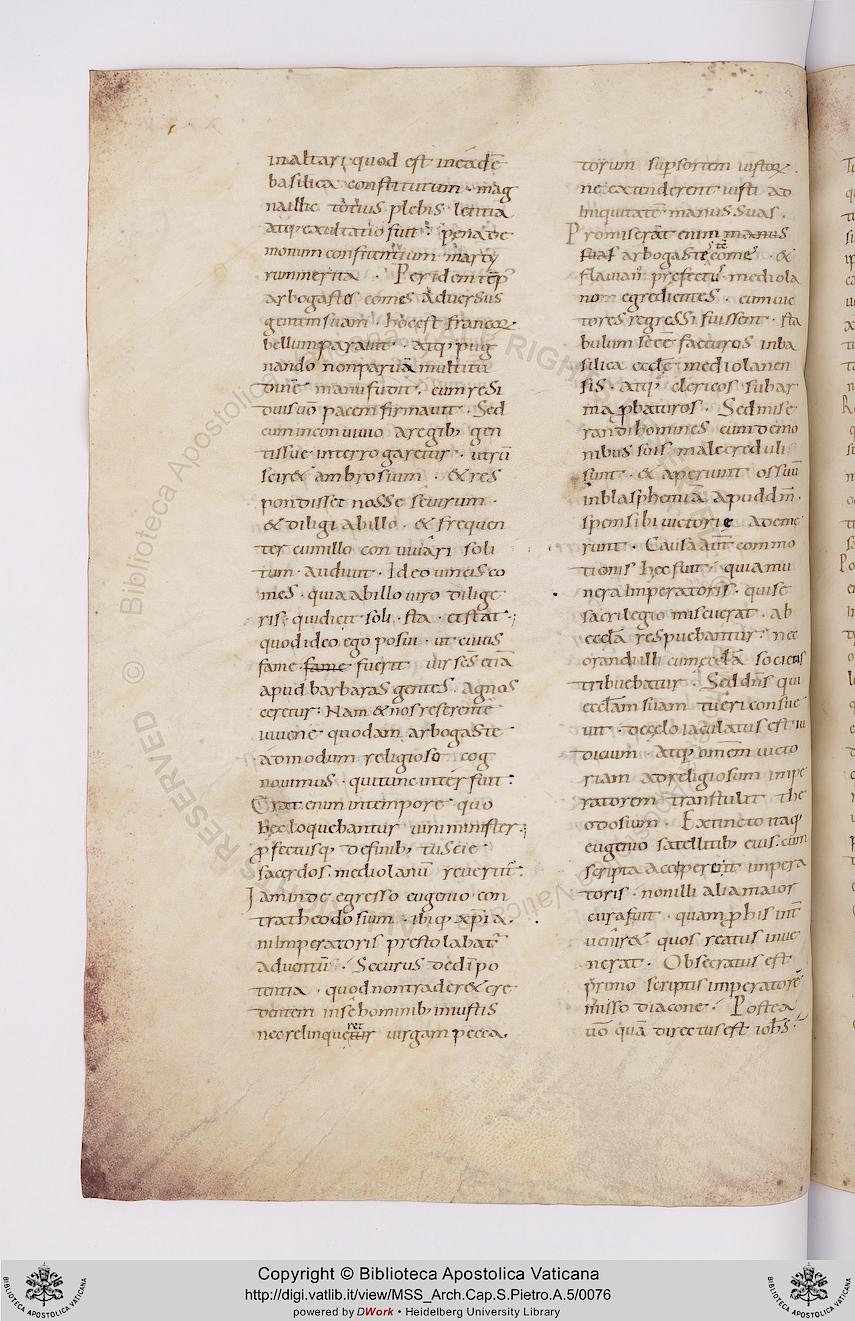 in altari quod est in eadē
basilica constitutum · mag
na illic totius plebis · letitia
atq; exultatio fuit · pena de
monum constitutium · marty
rum merita · Per idem tēp̄
arbogastes comes adversus
gentem suam · hoc est francoꝝ
bellum paravit · atq; pug
nando non parvā multitu
dinē manu fudit · cum resi
duis uō pacem firmavit · Sed
cum in convivio a regib; gen
tis sue interrogaretur · utrū
sciret ambrosium · & res
pondisset nosse se virum ·
& diligi ab illo · & frequen
ter cum illo convivari soli
tum · audivit · Ideo vincis co
mes · quia ab illo viro dilige
ris · qui dicit soli · sta · et stat ·
quod ideo ego posui · ut cuius
fame fame fuerit vir scs̄ etiā
apud barbaras gentes · agnos
ceretur · Nam & nos referente
iuvene quodam arbogaste
admodum religioso cog
novimus · qui tunc inter fuit :
Erat enim in tempore quo
hec loquebantur vini minister ;
ꝓfectusq; de finib; tuscie ·
sacerdos · mediolanū revertit :
Jam inde egresso eugenio con
tra theodosium · ibiq; xp̄ia
ni imperatoris prestolabat
adventū · Securus de dī po
tentia · quod non traderet cre
dentem in se hominib; iniustis
nec relinqueret virgam pecca
torum sup sortem iustoꝝ ·
ne extenderent iusti ad
iniquitatē manus suas ·
Promiserāt enim manus
suas arbogastes tē comes · &
flavian' prefectus · mediola
no egredientes · cum vic
tores regressi fuissent · sta
bulum se te facturos in ba
silica eccłe mediolanen
sis · atq; clericos sub ar
ma ꝓbaturos · Sed mise
randi homines cum demo
nibus suis male creduli
sunt · & aperiunt os suū
in blasphemiā apud dm̄ ·
spem sibi victorie ademe
runt · Causa aūt commo
tionis hec fuit quia mu
nera imperatoris · qui se
sacrilegio miscuerat · ab
eccłā respuebantur · nec
orandi illi cum eccłā societas
tribuebatur · Sed dn̄s qui
eccłam suam tueri consue
vit · de celo iaculatus est iu
dicium · Atq; omem victo
riam ad religiosum impe
ratorem transtulit the
odosium · Extincto itaq;
eugenio satellitib; eius · cum
scripta acciperet impera
toris · non illi alia maior
cura fuit · quam ꝓ his int̄
veniret quos reatus inve
nerat · Obsecratus est
primo scriptis imperatorē
misso diacone · Postea
uō quā directus est ioh̄s
Copyright © Biblioteca Apostolica Vaticana
http://digi.vatlib.it/view/MSS_Arch.Cap.S.Pietro.A.5/0076
powered by DWork • Heidelberg University Library